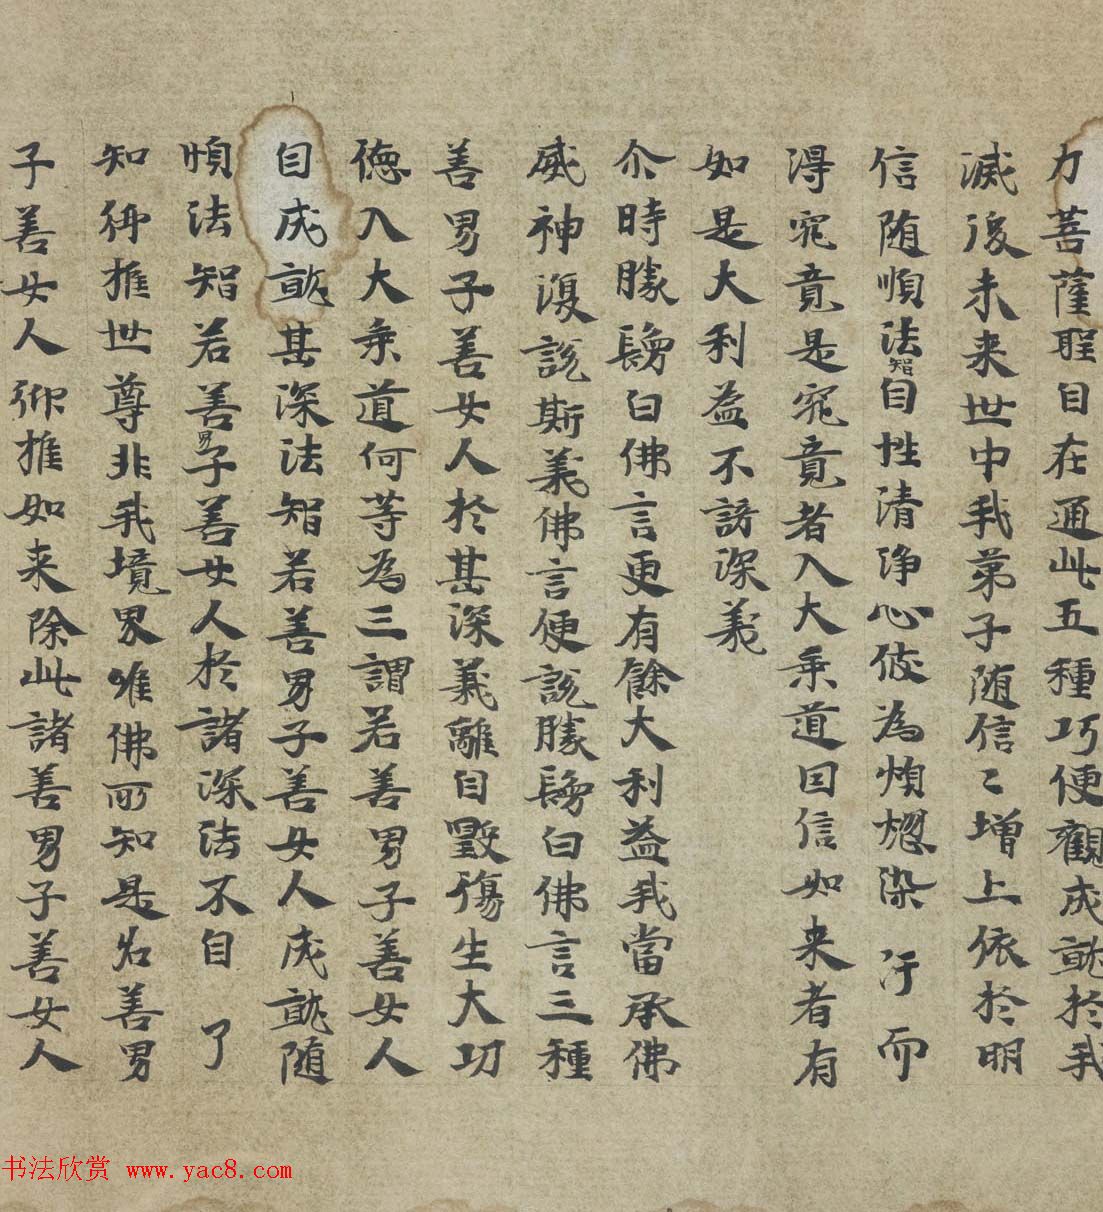 力菩薩聖自在通此五種巧便觀成就於我
滅後未来世中我弟子随信々增上依於明
信随順法智自性清浄心彼為煩惱染汙而
得究竟是究竟者入大乗道因信如来者有
如是大利益不謗深義
尒時勝鬘白佛言更有餘大利益我當承佛
威神復說斯義佛言便說勝鬘白佛言三種
善男子善女人於甚深義離自毀傷生大功
徳入大乗道何等為三謂若善男子善女人
自成就甚深法智若善男子善女人成就随
順法智若善男子善女人於諸深法不自了
知仰推世尊非我境界唯佛所知是名善男
子善女人仰推如来除此諸善男子善女人
书法欣赏 www.yac8.com